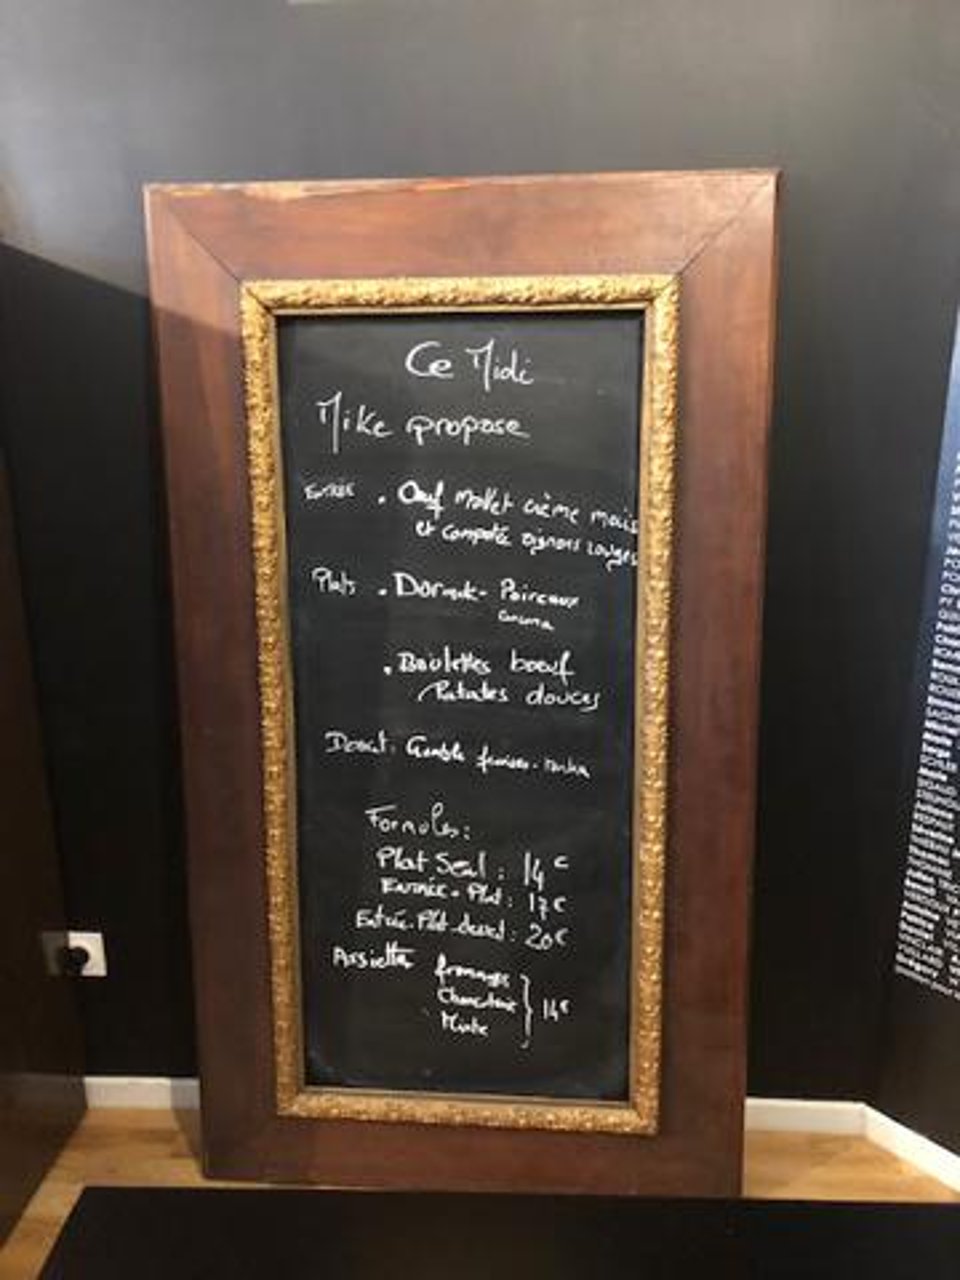 Ce Midi
Mike propose
Entrée . Oeuf mollet crème maïs
et compotée oignons rouges
Plats . Dorade - Poireaux
. Boulettes boeuf
Patates douces
Dessert . Crumble fraises -
Formules :
Plat Seul : 14€
Entrée - Plat : 17€
Entrée - Plat - dessert : 20€
Assiette fromage
Charcuterie } 14€
Mixte